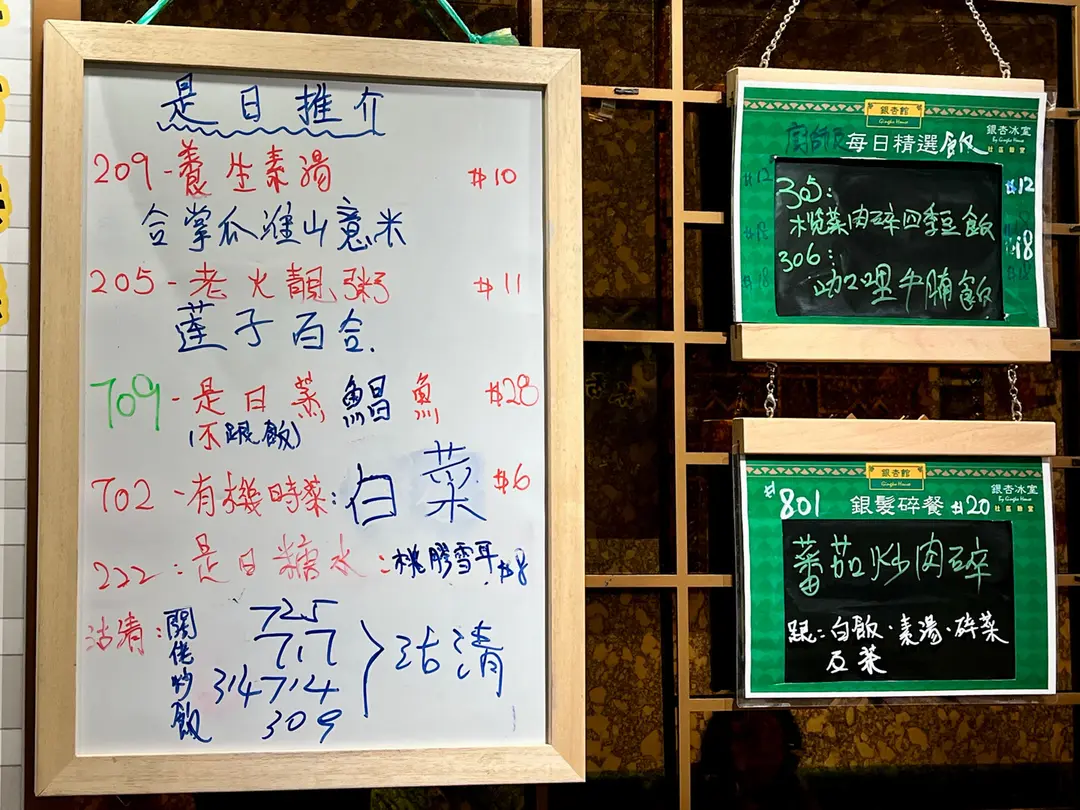 是日推介
209-養生素湯 #10
合掌瓜淮山薏米
205-老火靚粥 #11
蓮子百合.
709-是日蒸鯧魚 #28
(不跟飯)
702-有機時菜:白菜 #6
222:是日糖水:桃膠雪耳 #8
沽清:
關佬炒飯
725
717
314 714
309
}沽清
銀杏館
Gingko House
銀杏冰室
By Gingko House
社區飯堂
廚師發 每日精選飯
305: #12
欖菜肉碎四季豆飯
306: #18
咖喱牛腩飯
銀杏館
Gingko House
銀杏冰室
By Gingko House
社區飯堂
#801 銀髮碎餐 #20
蕃茄炒肉碎
跟:白飯·素湯·碎菜
及茶